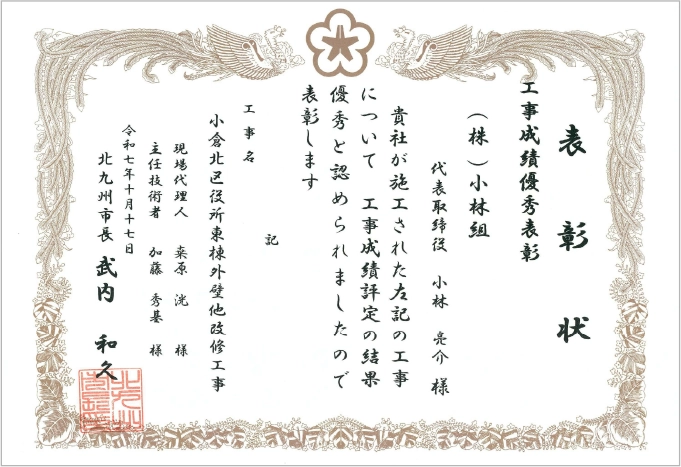 表彰状
工事成績優秀表彰
(株)小林組
代表取締役 小林 亮介 様
貴社が施工された左記の工事
について 工事成績評定の結果
優秀と認められましたので
表彰します
記
工事名
小倉北区役所東棟外壁他改修工事
現場代理人 桒原 洸 様
主任技術者 加藤 秀基 様
令和七年十月十七日
北九州市長 武内 和久